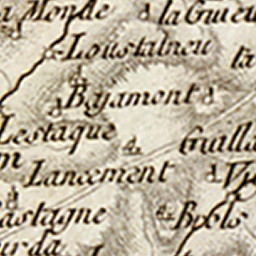 Monde
la
Loustalneu
la
Bajamont
Lestaque
Guilla
Lancement
astagne
Bools
urda